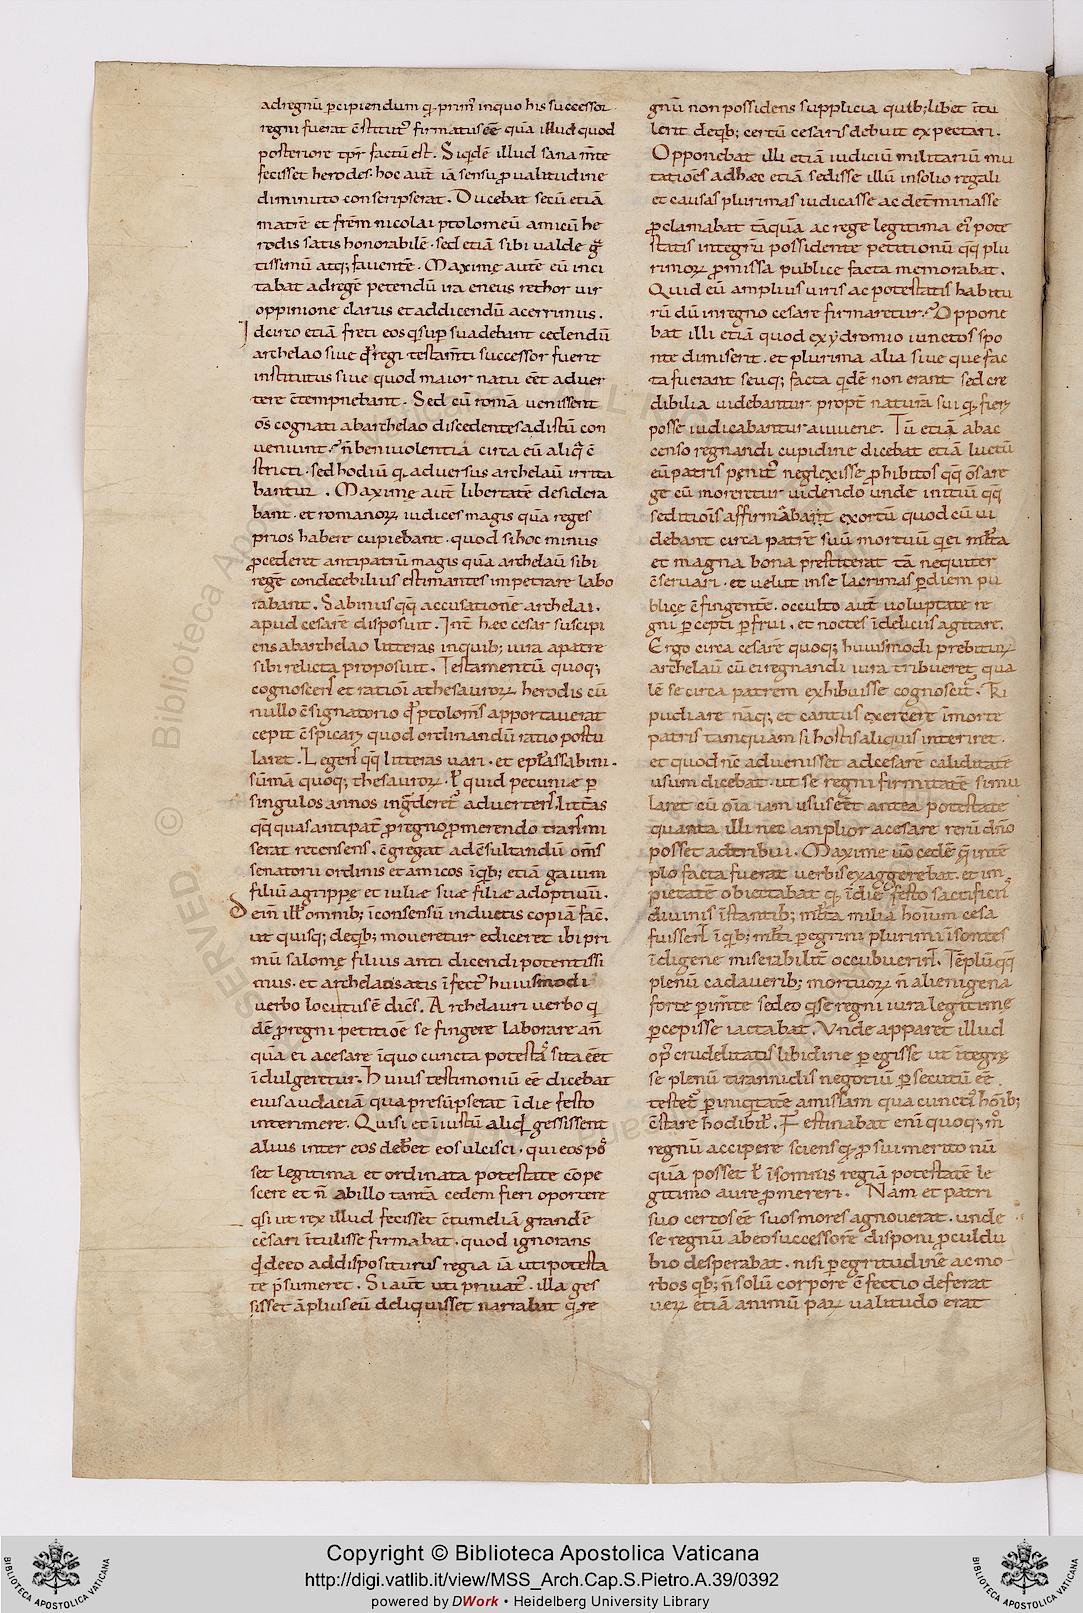 ad regnū ꝑcipiendum q̄ primū in quo his successor
regni fuerat c̄stitut᷒ firmatus eē quā illud quod
posteriore tp̄r factū est. Siqdē illud sana m̄te
fecisset herodes. hoc aut̄ iā sensu ꝓ ualitudine
diminuto conscripserat. Ducebat secū etiā
matrē et frēm nicolai ptolomeū amicū he
rodis satis honorabilē. sed etiā sibi ualde g̃
tissimū atq; fauentē. Maxime autē eū inci
tabat ad regē petendū ira eneus rethor uir
oppinione clarus et ad dicendū acerrimus.
Idcirco etiā freti eos q̄ sup suadebant cedendū
archelao siue qd̄ regi testam̄ti successor fuerit
institutus siue quod maior natu eēt aduer
tere c̄tempnebant. Sed cū romā uenissent
om̄s cognati ab archelao discedentes ad istū con
ueniunt. n̄ beniuolentiā circa eū aliq̄ c̄
stricti. sed hodiū q̄ aduersus archelaū irrita
bantur. Maxime aut̄ libertatē desidera
bant. et romanoꝝ iudices magis quā reges
prios habere cupiebant. quod si hoc minus
ꝓcederet antipatrū magis quā archelaū sibi
regē condecebilius estimantes impetrare labo
rabant. Sabinus qq̄ accusationē archelai.
apud cesarē disposuit. Int̄ hec cesar suscipi
ens ab archelao litteras in quib; iura a patre
sibi relicta proposuit. Testamentū quoq;
cognoscens et ratioī a thesauroꝝ herodis cū
nullo c̄signatorio qd̄ ptolom̄s apportauerat
cepit c̄spicari quod ordinandū ratio postu
laret. Legens qq̄ litteras uari. et epl̄as sabini.
summā quoq; thesauroꝝ. ł quid pecunie ꝑ
singulos annos inḡderet᷒ aduertens litt̄as
qq̄ quas antipat̄ ꝓ regno ꝓmerendo transmi
serat recensens. c̄gregat ad c̄sultandū om̄s
senatorii ordinis et amicos ī qb; etiā gaium
filiū agrippe et iulie sue filie adoptiuū.
Dein illis omnib; ī consensū inductis copiā fac̄.
ut quisq; de qb; moueretur ediceret ibi pri
mū salome filius anti dicendi potentissi
mus. et archelaus atis ī fect᷒ huiusmodi
uerbo locutus ē dicēs. Archelauri uerbo q
dē ꝓ regni petitiōe se fingere laborare an̄
quā ei a cesare ī quo cuncta potestas sita eēt
ī dulgeretur. Huius testimoniū eē dicebat
eius audaciā qua presūpserat ī die festo
interimere. Qui si et ī iustū aliqd gessissent
alius inter eos deb̄et eos ulcisci. qui eos pos
set legitima et ordinata potestate cōpe
scere et n̄ ab illo tantā cedem fieri oportere
qsi ut rex illud fecisset c̄tumeliā grandē
cesari ītulisse firmabat. quod ignorans
qd̄ de eo addispositurus regia iā uti potesta
te p̄sumeret. Si aut̄ uti priuat᷒. illa ges
sisset āplius eū deliquisset narrabat q̄ re
gnū non possidens supplicia quib;libet ītu
lerit de qb; certū cesaris debuit expectari.
Opponebat illi etiā iudiciū militariū mu
tatiōes ad hec etiā sedisse illū in solio regali
et causas plurimas iudicasse ac det̄minasse
ꝓclamabat tāquā ac rege legitima ei᷒ pote
statis integrū possidente petitionū qq̄ plu
rimoꝝ ꝓmissa publice facta memorabat.
Quid eū amplius uiris ac potestatis habitu
rū dū in regno cesare firmaretur. Oppone
bat illi etiā quod ex ydromio iunctos spo
nte dimiserit. et plurima alia siue que fac
ta fuerant seuq; facta qdē non erant sed cre
dibilia uidebantur. propt̄ naturā sui q̄ fieri
posse iudicabantur a iuuene. Tū etiā ab ac
censo regnandi cupidine dicebat etiā luctū
eū patris penit᷒ neglexisse ꝓhibitos qq̄ om̄s are
ge cū moreretur uidendo unde initiū qq̄
seditiōis affirmabant exortū quod cū ui
debant circa patrē suū mortuū q ei mlta
et magna bona prestiterat tā nequiter
c̄seruari. et uelut in se lacrimas ꝑ diem pu
blice c̄fingentē. occulto aut̄ uoluptate re
gni ꝑcepti ꝑfrui. et noctes ī deliciis agitare.
Ergo circa cesarē quoq; huiusmodi prebituꝝ
archelaū cū ei regnandi iura tribueret qua
lē se circa patrem exhibuisse cognoscit᷒. Ri
pudiare nāq; et cantus exercere ī morte
patris tamquam si hostis aliquis interiret.
et quod nc̄ aduenisset ad cesarē caliditatē
usum dicebat. ut se regni firmitatē simu
laret cū oīa iam usus eēt antea potestate
quanta illi nec amplior a cesare rerū dn̄o
posset adtribui. Maxime uō cedē q̄ in tē
plo facta fuerat uerbis exaggerebat. et im
pietatē obiectabat q̄ ī die festo sacrificii
diuinis īstantib; mlta milia hoīum cesa
fuissent ī qb; mlti ꝑegrini plurimi īsontes
īdigene miserabilit̄ occubuerint. Tēplū qq̄
plenū cadauerib; mortuoꝝ n̄ alienigena
forte ꝑim̄te sed eo q̄ se regni iura legitime
ꝑcepisse iactabat. Unde apparet illud
op᷒ crudelitatis libidine ꝑegisse ut īteg
se plenū tirannidis negotiū ꝑsecutū eē
testet᷒ ꝑ iniq̄tatē amissam qua cunctis hōib;
c̄stare hodibil᷒. Festinabat enī quoq; m̊
regnū accipere sciens q̄ ꝓ sui merito nū
quā posset ł ī somnis regiā potestatē le
gitimo aure ꝓmereri. Nam et patri
suo certos eē suos mores agnouerat. unde
se regnū ab eo successorē disponi ꝓculdu
bio desperabat. nisi ꝑ egritudinē ac mo
rbos qb; n̄ solū corpore c̄fectio deferat
ueꝝ etiā animū paꝝ ualitudo erat
Copyright © Biblioteca Apostolica Vaticana
http://digi.vatlib.it/view/MSS_Arch.Cap.S.Pietro.A.39/0392
powered by DWork • Heidelberg University Library
BIBLIOTECA APOSTOLICA VATICANA
BIBLIOTECA APOSTOLICA VATICANA